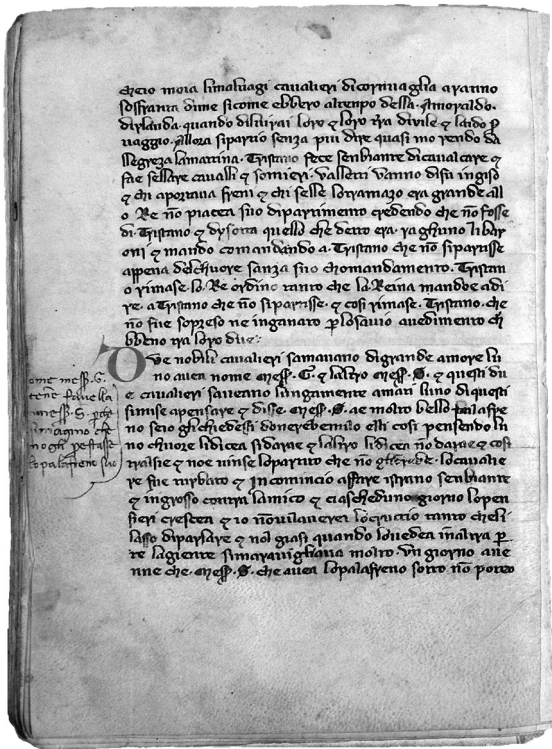 meio moia limaluagi caualieri dicornuaglia aranno
sosfranta dime sicome ebbero altenpo della Amoraldo.
dirlanda. quando dilitirai loro et loro tra diuile et laido p
uaggio. Alloza sipartio senza piu dire quasi mo rendo da
llegreza lamattina. Tristano fece senbiante dicaualcare et
fae sellare caualli et somieri. Valletti vanno disu ingiso
et chi aportaua freni et chi selle lotramazo era grande all
o Re no piacea suo dipartimento credendo che no fosse
di Tristano et dysotta quello che detto era. raghuno libar
oni et mando comandando a. Tristano che no sipartisse
appena delchuore sanza suo chomandamento. Tristan
o rimase. lo. Re ordino tanto che la Reina mandoe adi
re. a Tristano che no sipartisse. et cosi rimase. Tristano. che
no fue sopreso ne inganato p losauio auedimento ch
bbeno tra loro due
Due nobili caualieri samauano digrande amore lu
no auea nome Mess. G. et laltro Mess. S. et questi du
e caualieri saueano lungamente amati luno diquesti
simise apensare et disse. Mess. S. ae molto bello palafre
no seio ghichedessi donerebemilo elli cosi pensendo lu
no chuore lidicea sidarae et laltro lidicea no darae et cosi
tralsie et noe uinse lopartito che no locaualie
re fue turbato et Incomincio affare istrano senbiante
et ingrosso contra lamico et ciascheduno giorno lopen
sieri crescea et io nouilaueret locruccio tanto cheli
lasso diparlare et uol giasi quando louedea inaltra p
te lagiente simarauighaua molto vn giorno aue
nne che. Mess. S. che auea lopalafreno sotto no poteo
ome mess. G.
tene fauella
a mess. S. p che
imagino che
no gli pstasse
lo palafreno suo